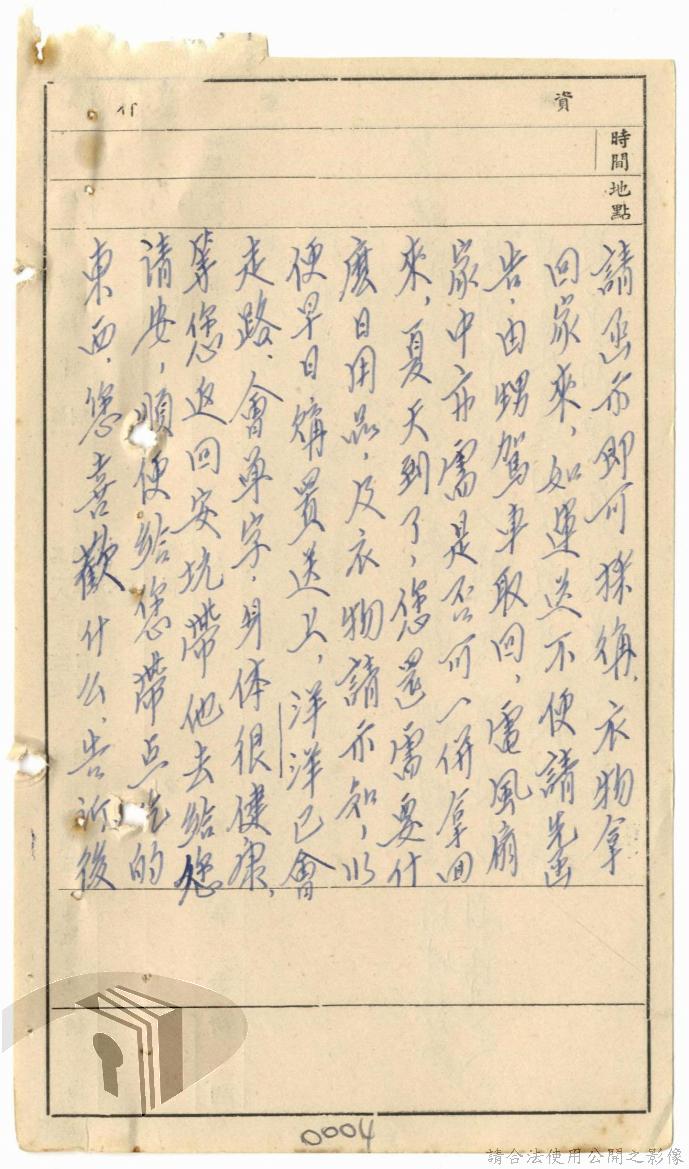 資
行
時間
地點
請函示即可採稱，衣物拿
回家來，如運送不便請先函
告，由甥駕車取回，電風扇
家中亦需是否可一併拿回
來，夏天到了，您還需要什
麼日用品，及衣物請示知，以
便早日購置送上，洋洋已會
走路、會單字，身体很健康，
等您返回安坑帶他去給您
请安，順便給您帶点吃的
東西，您喜歡什么，告訴後
0004
請合法使用公開之影像